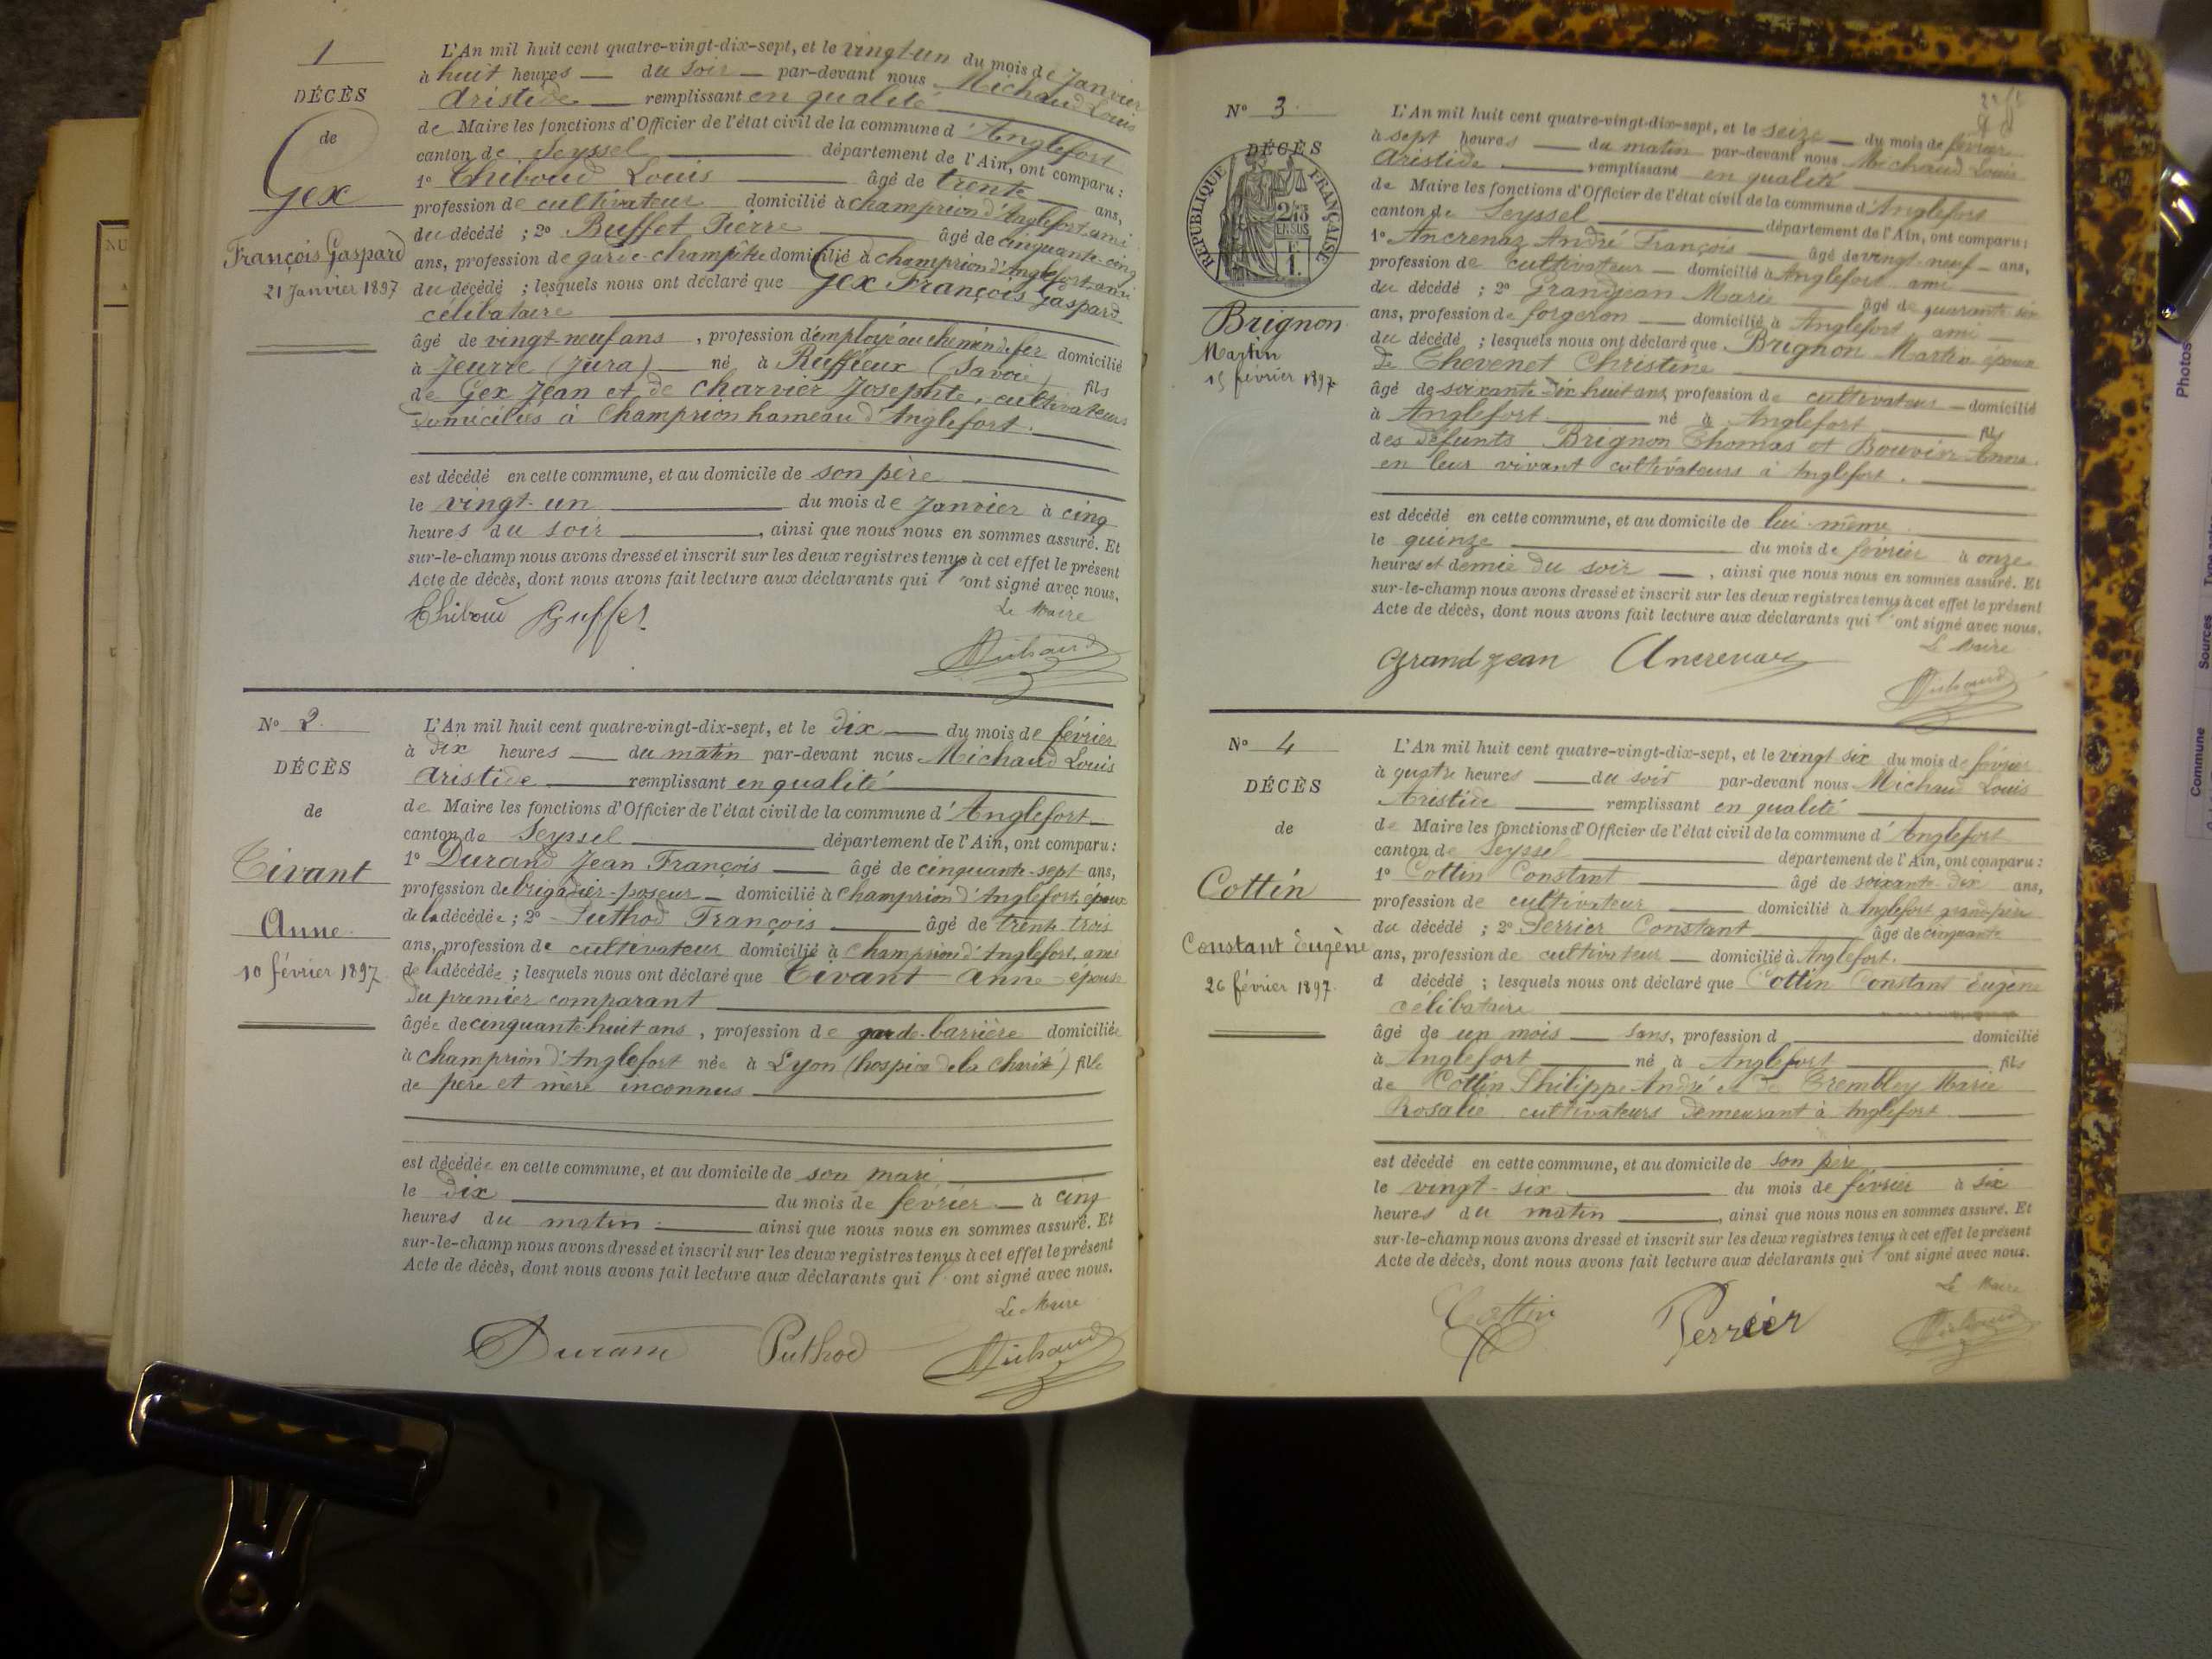 1
DÉCÈS
de
Gex
François Gaspard
21 Janvier 1897
L'An mil huit cent quatre-vingt-dix-sept, et le vingt-un du mois de Janvier
à huit heures du soir par-devant nous Michaud Louis
Aristide remplissant en qualité
de Maire les fonctions d'Officier de l'état civil de la commune d'Anglefort
canton de Seyssel département de l'Ain, ont comparu :
1º Thiboud Louis âgé de trente ans,
profession de cultivateur domicilié à Champrion d'Anglefort, ami
du décédé ; 2º Buffet Pierre âgé de cinquante-cinq
ans, profession de garde-champêtre domicilié à Champrion d'Anglefort, ami
du décédé ; lesquels nous ont déclaré que Gex François Gaspard
célibataire
âgé de vingt-neuf ans, profession d'employé au chemin de fer domicilié
à Jeurre (Jura) né à Ruffieux (Savoie) fils
de Gex Jean et de Charvier Josephte, cultivateurs
domiciliés à Champrion hameau d'Anglefort.
est décédé en cette commune, et au domicile de son père
le vingt-un du mois de Janvier à cinq
heures du soir, ainsi que nous nous en sommes assuré. Et
sur-le-champ nous avons dressé et inscrit sur les deux registres tenus à cet effet le présent
Acte de décès, dont nous avons fait lecture aux déclarants qui l'ont signé avec nous.
Le Maire
Thiboud Buffet
Michaud
Nº 2.
DÉCÈS
de
Tivant
Anne
10 février 1897
L'An mil huit cent quatre-vingt-dix-sept, et le dix du mois de février
à dix heures du matin par-devant nous Michaud Louis
Aristide remplissant en qualité
de Maire les fonctions d'Officier de l'état civil de la commune d'Anglefort
canton de Seyssel département de l'Ain, ont comparu :
1º Durand Jean François âgé de cinquante-sept ans,
profession de brigadier-poseur domicilié à Champrion d'Anglefort, époux
de la décédée ; 2º Puthod François âgé de trente trois
ans, profession de cultivateur domicilié à Champrion d'Anglefort, ami
de la décédée ; lesquels nous ont déclaré que Tivant Anne épouse
du premier comparant
âgée de cinquante-huit ans, profession de garde-barrière domiciliée
à Champrion d'Anglefort née à Lyon (hospice de la Charité) fille
de père et mère inconnus
est décédée en cette commune, et au domicile de son mari
le dix du mois de février à cinq
heures du matin ainsi que nous nous en sommes assuré. Et
sur-le-champ nous avons dressé et inscrit sur les deux registres tenus à cet effet le présent
Acte de décès, dont nous avons fait lecture aux déclarants qui l'ont signé avec nous.
Le Maire
Durand Puthod Michaud
Nº 3.
DÉCÈS
RÉPUBLIQUE FRANÇAISE
2/10 EN SUS
Brignon
Martin
15 février 1897
L'An mil huit cent quatre-vingt-dix-sept, et le seize du mois de février
à sept heures du matin par-devant nous Michaud Louis
Aristide remplissant en qualité
de Maire les fonctions d'Officier de l'état civil de la commune d'Anglefort
canton de Seyssel département de l'Ain, ont comparu :
1º Ancrenaz André François âgé de vingt-neuf ans,
profession de cultivateur domicilié à Anglefort ami
du décédé ; 2º Grandjean Marie âgé de quarante six
ans, profession de forgeron domicilié à Anglefort ami
du décédé ; lesquels nous ont déclaré que Brignon Martin époux
de Thevenet Christine
âgé de soixante-dix huit ans, profession de cultivateur domicilié
à Anglefort né à Anglefort fils
des défunts Brignon Thomas et Bouvier Anne
en leur vivant cultivateurs à Anglefort.
est décédé en cette commune, et au domicile de lui-même
le quinze du mois de février à onze
heures et demie du soir, ainsi que nous nous en sommes assuré. Et
sur-le-champ nous avons dressé et inscrit sur les deux registres tenus à cet effet le présent
Acte de décès, dont nous avons fait lecture aux déclarants qui l'ont signé avec nous.
Le Maire
Grandjean Ancrenaz
Michaud
Nº 4
DÉCÈS
de
Cottin
Constant Eugène
26 février 1897
L'An mil huit cent quatre-vingt-dix-sept, et le vingt six du mois de février
à quatre heures du soir par-devant nous Michaud Louis
Aristide remplissant en qualité
de Maire les fonctions d'Officier de l'état civil de la commune d'Anglefort
canton de Seyssel département de l'Ain, ont comparu :
1º Cottin Constant âgé de soixante-dix ans,
profession de cultivateur domicilié à Anglefort grand-père
du décédé ; 2º Perrier Constant âgé de cinquante
ans, profession de cultivateur domicilié à Anglefort.
d décédé ; lesquels nous ont déclaré que Cottin Constant Eugène
célibataire
âgé de un mois sans, profession d domicilié
à Anglefort né à Anglefort fils
de Cottin Philippe André et de Trembley Marie
Rosalie cultivateurs demeurant à Anglefort.
est décédé en cette commune, et au domicile de son père
le vingt-six du mois de février à six
heures du matin, ainsi que nous nous en sommes assuré. Et
sur-le-champ nous avons dressé et inscrit sur les deux registres tenus à cet effet le présent
Acte de décès, dont nous avons fait lecture aux déclarants qui l'ont signé avec nous.
Le Maire
Cottin Perrier Michaud
Photos
Commune Sources